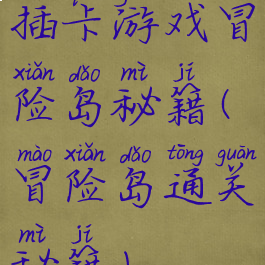 插卡游戏冒
xiǎn dǎo mì jí
险岛秘籍(
mào xiǎn dǎo tōng guān
冒险岛通关
mì jí
秘籍)